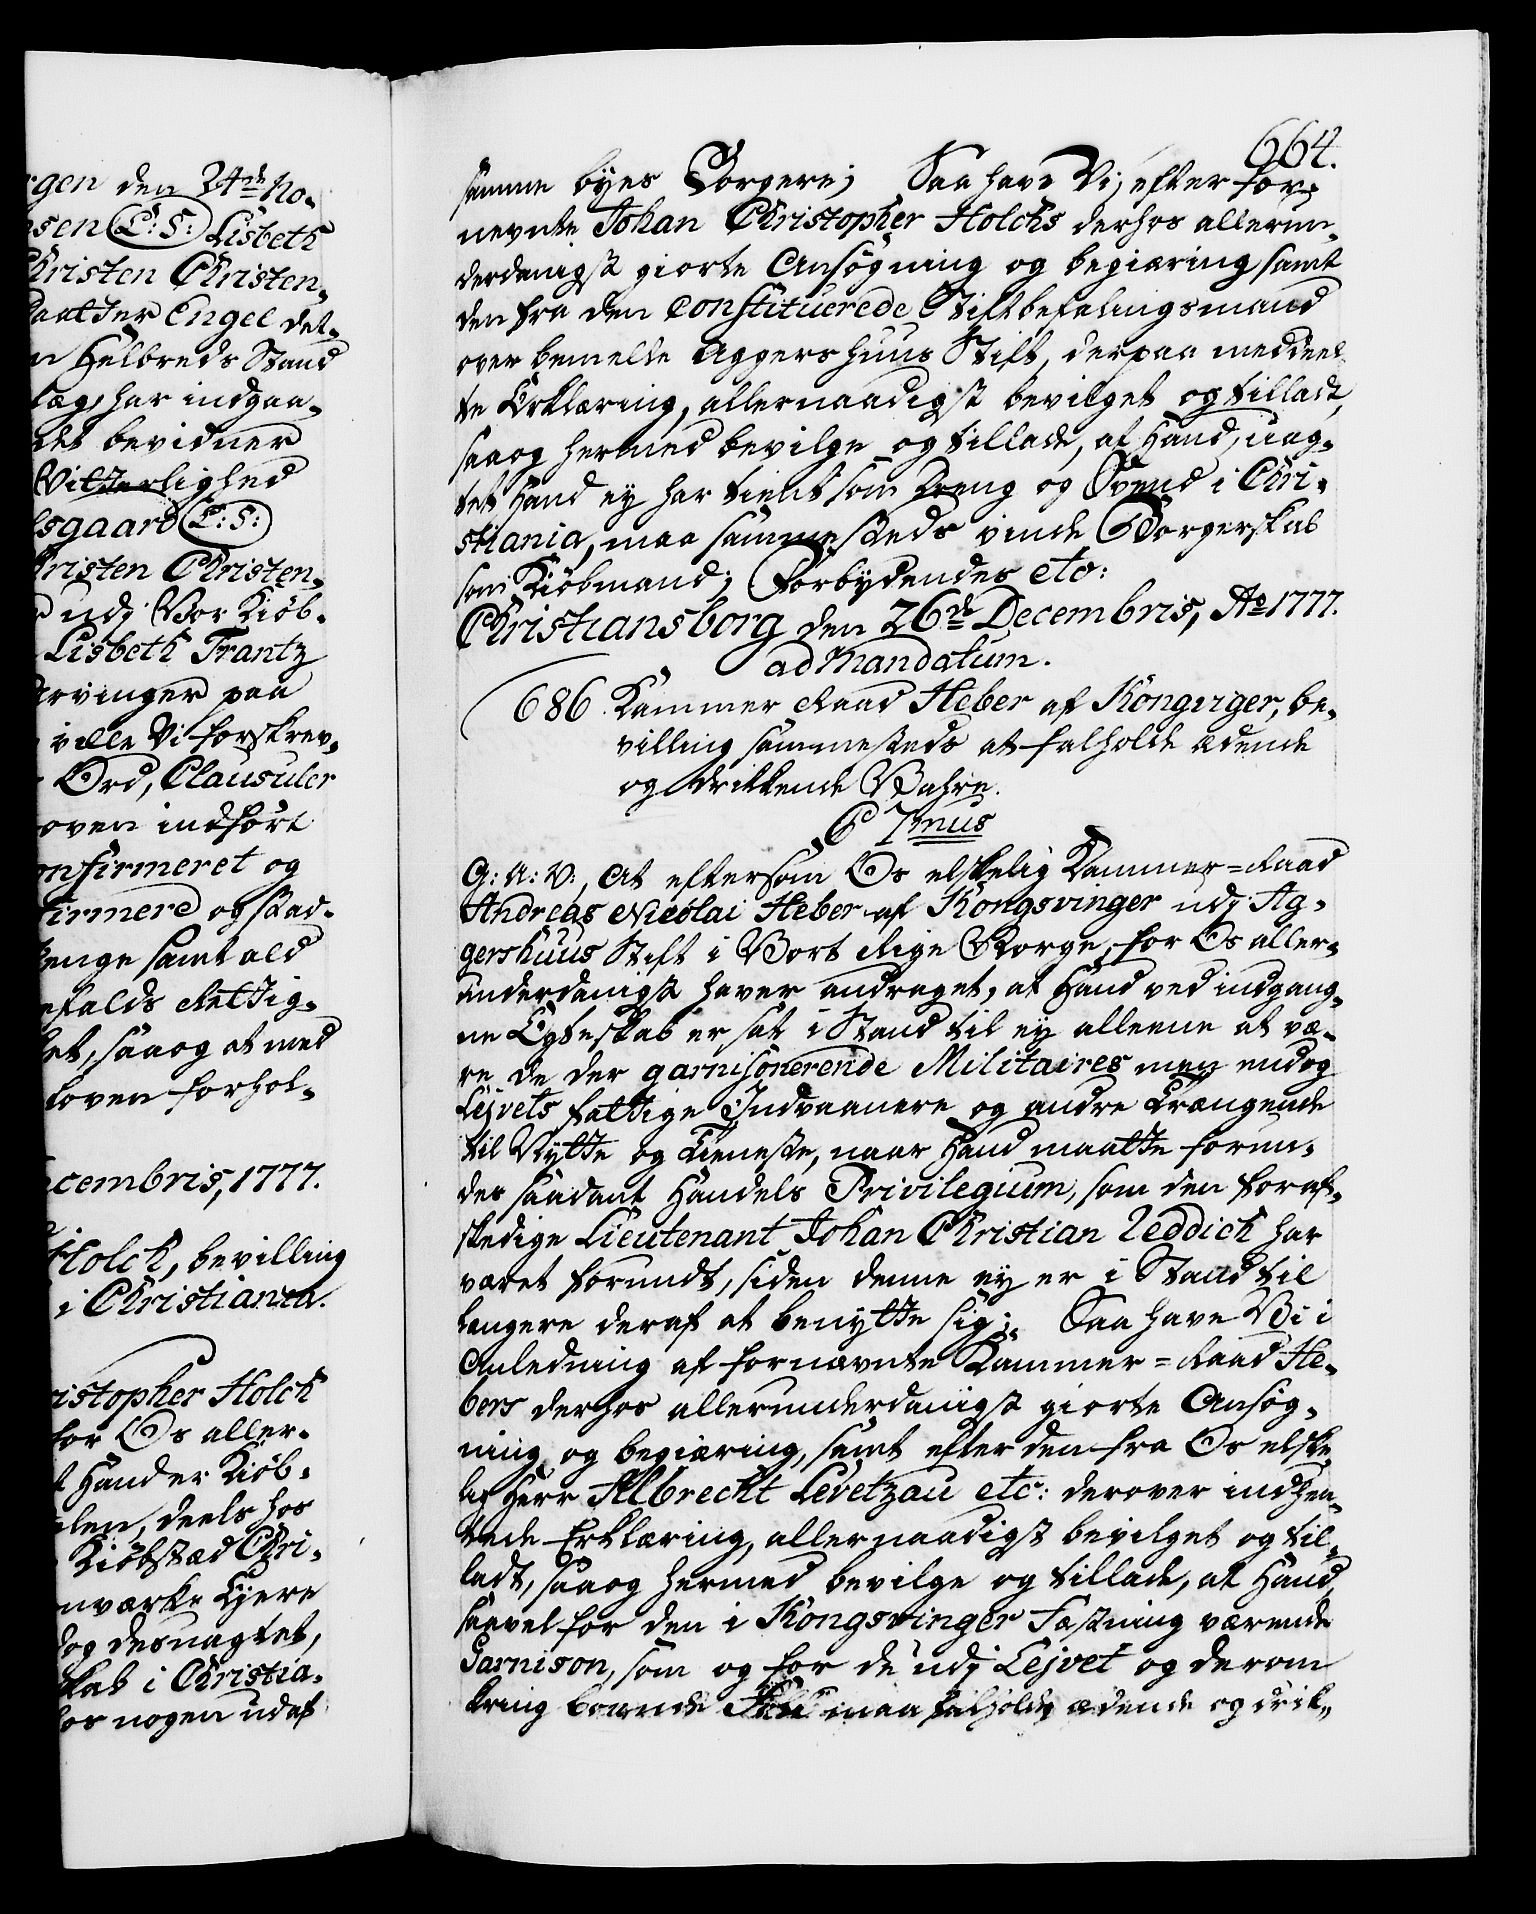 rgen den 24de No-
sen (L:S:) Lisbeth
Christen Christen-
daatter Engel det-
n Helbreds Stand
læg, har indgaa-
det bevidner
Vitterlighed
lsgaard (L:S:)
Christen Christen-
udj Vor Kiöb-
Lisbeth Frantz
Arvinger paa
ville Vi forskrev-
Ord, Clausuler
oven indfört
onfirmeret og
firmere og stad-
enge samt ald
efalds Rettig-
et, saa og at med
Loven forhol-
ecembris, 1777.
Holck, bevilling
i Christiania.
ristopher Holck
for Os aller-
t Hand er Kiöb-
len, deels hos
Kiöbstæd Chri-
nværke Ejere
dog desuagtet,
skab i Christia-
hos nogen udaf
664.
samme byes Borgere; Saa have Vi, efter for-
nevnte Johan Christopher Holcks derhos allerun-
derdanigst giorte Ansögning og begiæring, samt
den fra den Constituerede Stiftbefalingsmand
over bemelte Aggershuus Stift, derpaa meddeel-
te Erklæring, allernaadigst bevilget og tilladt,
saa og hermed bevilge og tillade, at Hand, uag-
tet Hand ey har tient som Dreng og Svend i Chri-
stiania, maa sammesteds vinde Borgerskab
som Kiöbmand; Forbydendes etc:
Christiansborg den 26de Decembris, Ao 1777.
ad Mandatum.
686. Kammer Raad Heber af Kongviger, be-
villing sammesteds at falholde ædende
og drikkende Vahre.
C 7mus
G: A: V:, At eftersom Os elskelig Kammer=Raad
Andreas Nicolai Heber af Kongsvinger udj Ag-
gershuus Stift i Vort Rige Norge, for Os aller-
underdanigst haver andraget, at Hand ved indgang-
ne Egteskab er sat i Stand til ey alleene at væ-
re de der garnisonerende Militaires men endog
Lejvets fattige Indvaanere og andre Trængende
til Nytte og Tieneste, naar Hand maatte forun-
des saadant Handels Privilegium, som den foraf-
skedige Lieutenant Johan Christian Zeddich har
været forundt, siden denne ey er i Stand til
længere deraf at benytte sig; Saa have Vi i
Anledning af fornævnte Kammer=Raad He-
bers derhos allerunderdanigst giorte Ansög-
ning og begiæring, samt efter den fra Os elske
lig Herr Albrecht Levetzau etc: derover indhen-
tede Erklæring, allernaadigst bevilget og til-
ladt, saa og hermed bevilge og tillade, at Hand
saavel for den i Kongsvinger Fæstning værende
Garnison, som og for de udj Lejvet og derom
kring boende Folk maa falholde ædende og drik-